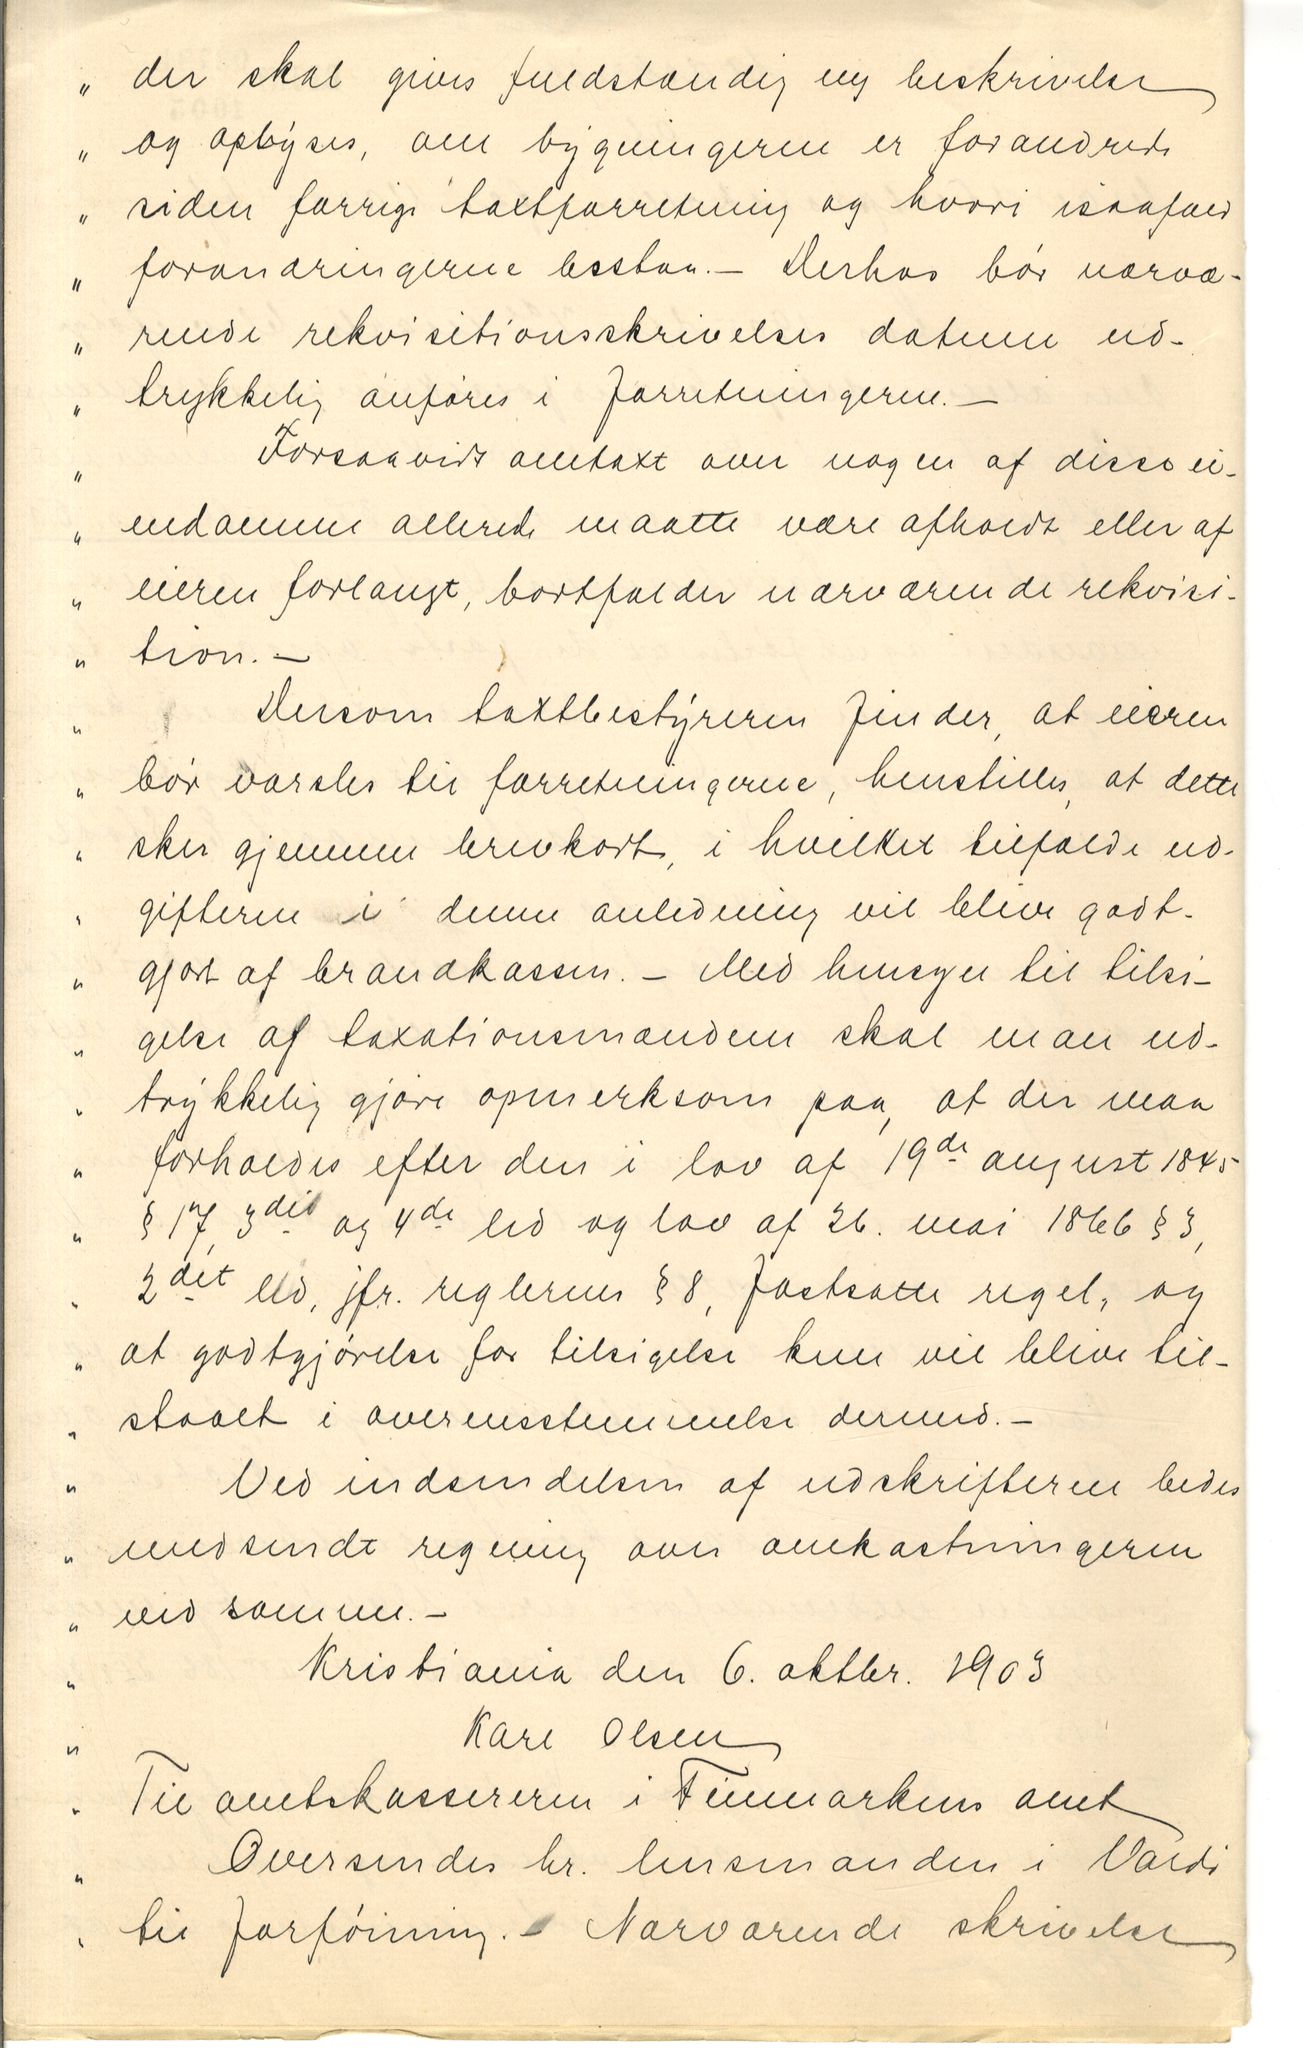 „ der skal gives fuldstændig ny beskrivelse
„ og oplyses, om bygningerne er forandrede
„ siden forrige taxtforretning og hvori isaafald
„ forandringerne bestaa. – Derhos bør nærvæ-
„ rende rekvisitionsskrivelses datum ud-
„ trykkelig anføres i forretningerne. –
„ Forsaavidt omtaxt over nogen af disse ei-
„ endomme allerede maatte være afholdt eller af
„ eieren forlangt, bortfalder nærværende rekvisi-
„ tion. –
„ Dersom taxtbestyreren finder, at eieren
„ bør varsles til forretningerne, henstilles, at dette
„ sker gjennem brevkort, i hvilket tilfælde ud-
„ gifterne i denne anledning vil blive godt-
„ gjort af brandkassen. – Med hensyn til tilsi-
„ gelse af taxationsmændene skal man ud-
„ trykkelig gjøre opmerksom paa, at der maa
„ forholdes efter den i lov af 19de august 1845
„ § 17, 3die og 4de led og lov af 26. mai 1866 § 3,
„ 2det led, jfr. reglernes § 8, fastsatte regel, og
„ at godtgjørelse for tilsigelse kun vil blive til-
„ staaet i overensstemmelse dermed. –
„ Ved indsendelsen af udskrifterne bedes
„ medsendt regning over omkostningerne
„ ved samme. –
„ Kristiania den 6. oktbr. 1903
„ Karl Olsen
„ Til amtskassereren i Finmarkens amt
„ Oversendes hr. lensmanden i Vardø
„ til forføining. – Nærværende skrivelse